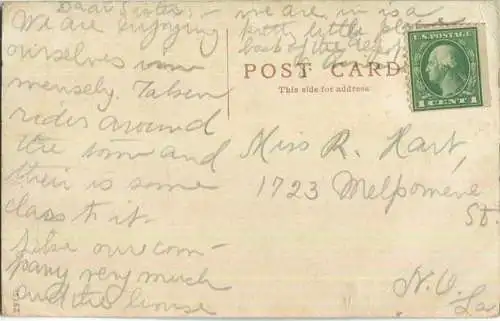 Dear Sister:-
We are enjoying
ourselves imm
mensely. Taken
rides around
the town and
their is some
class to it.
Like our com-
pany very much
and the house
we are in is a
little
back of the
POST CARD
This side for address.
U.S. POSTAGE
1 CENT 1
Miss R. Hart,
1723 Melpomene
St.
N.O.
La.